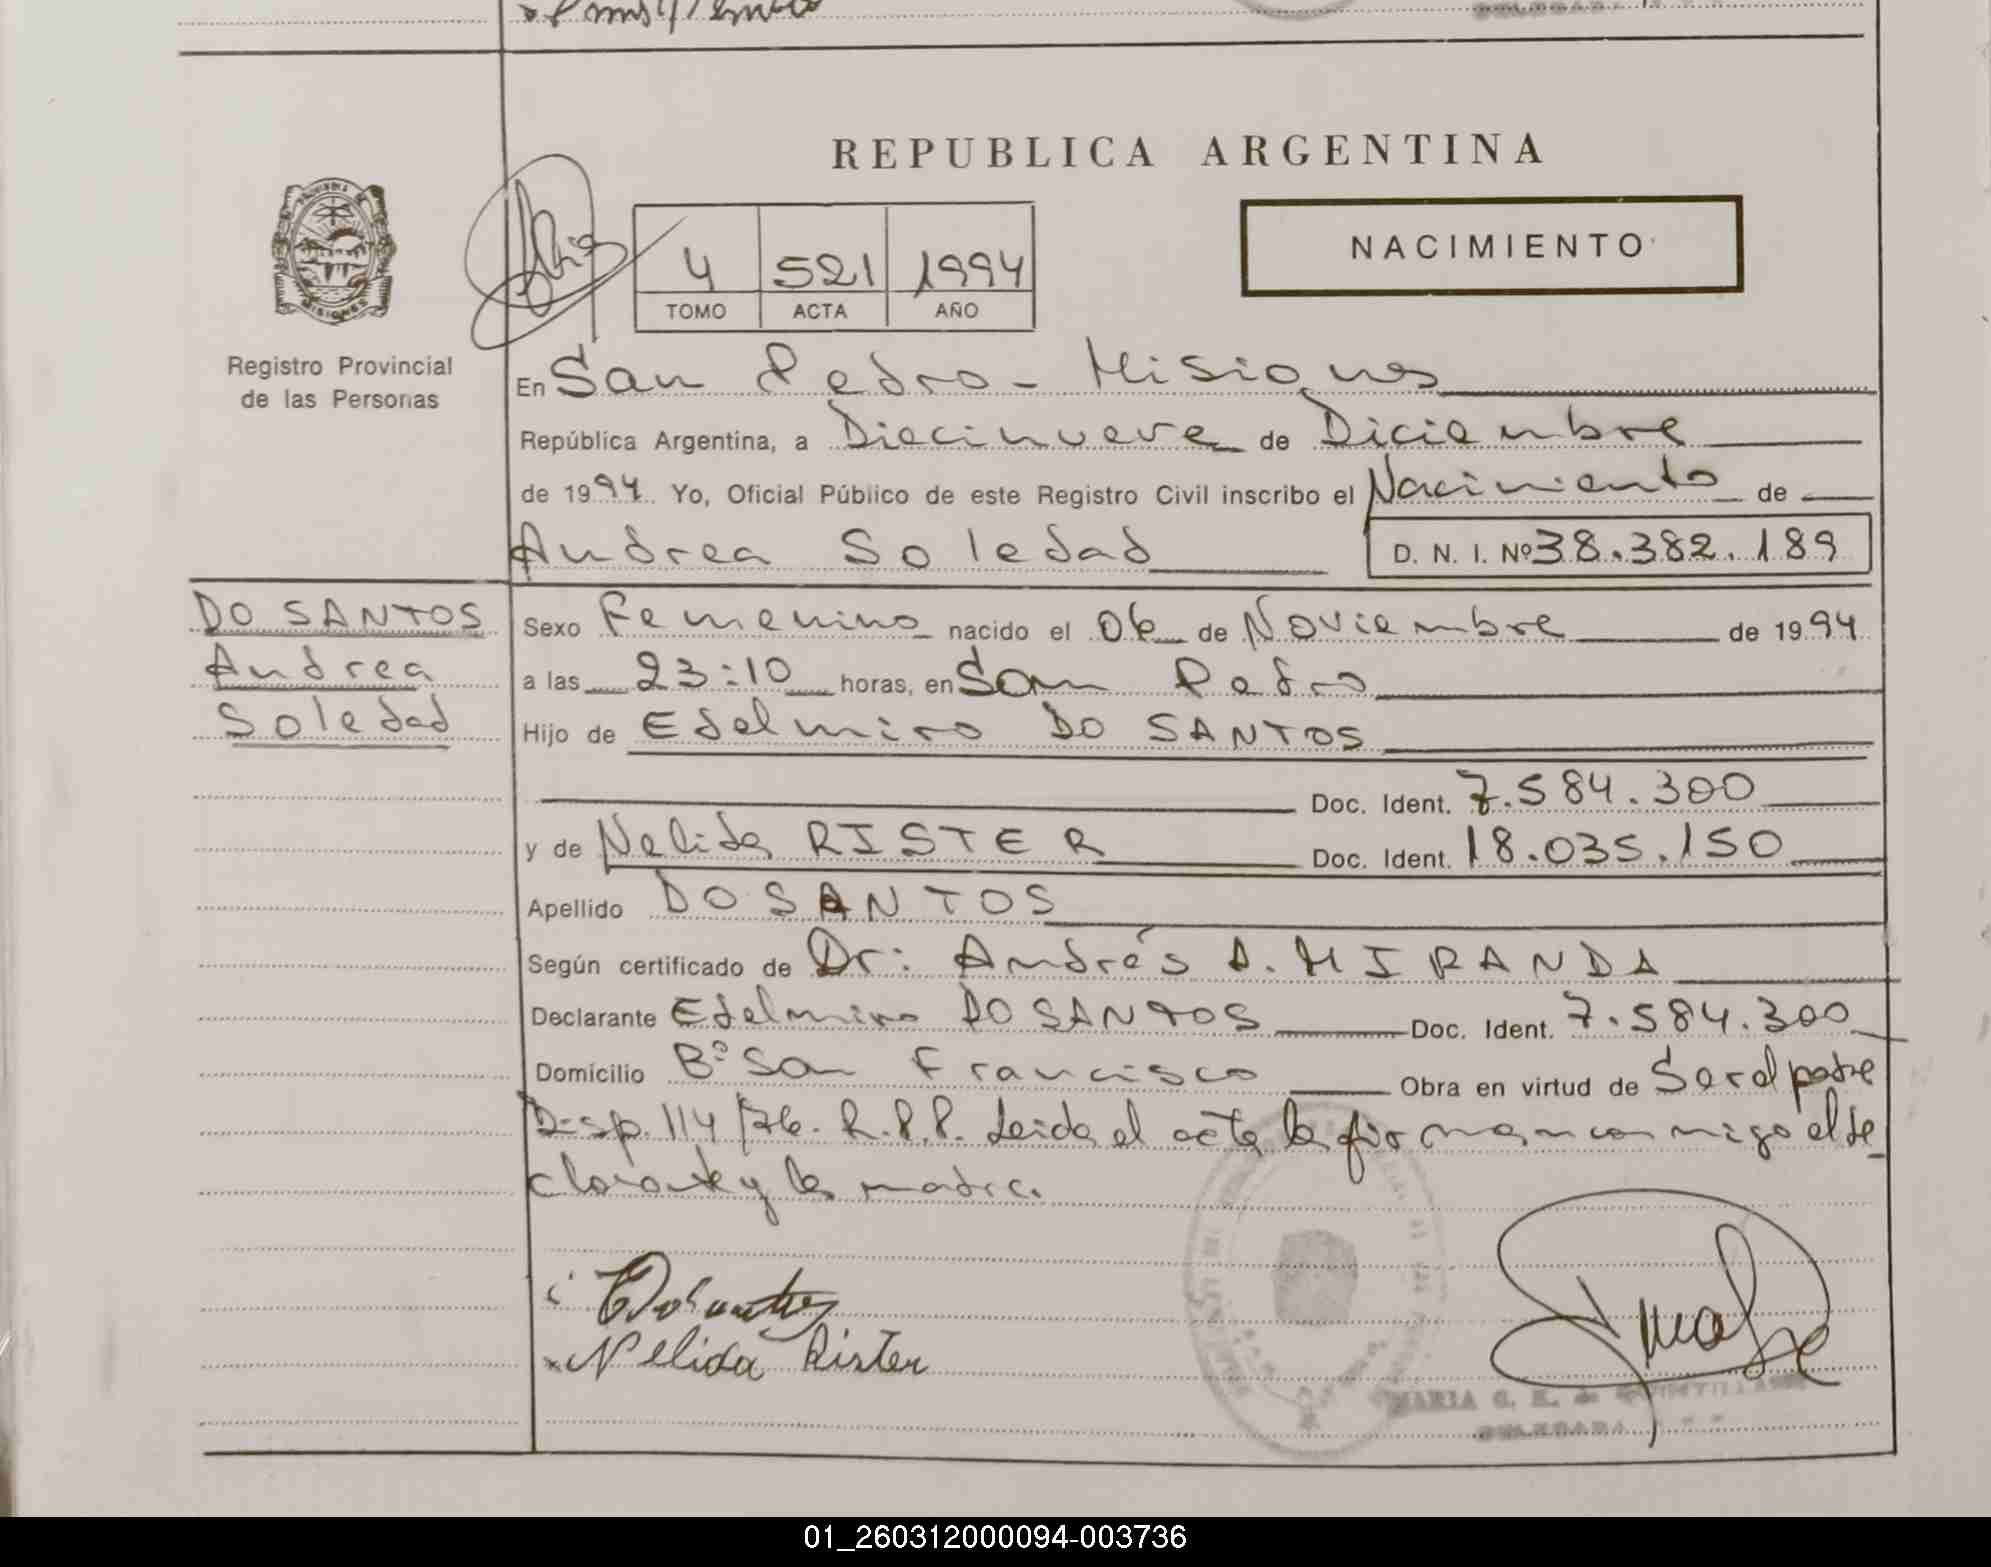 REPUBLICA ARGENTINA
NACIMIENTO
4 521 1994
TOMO ACTA AÑO
PROVINCIA DE
MISIONES
Registro Provincial
de las Personas
En San Pedro - Misiones
República Argentina, a Diecinueve de Diciembre
de 1994 Yo, Oficial Público de este Registro Civil inscribo el Nacimiento de
Andrea Soledad D. N. I. Nº 38.382.189
DO SANTOS
Andrea
Soledad
Sexo Femenino nacido el 06 de Noviembre de 1994
a las 23:10 horas, en San Pedro
Hijo de Edelmiro DO SANTOS
Doc. Ident. 7.584.300
y de Nelida RISTER Doc. Ident. 18.035.150
Apellido DO SANTOS
Según certificado de Dr: Andrés A. MIRANDA
Declarante Edelmiro DO SANTOS Doc. Ident. 7.584.300
Domicilio Bº San Francisco Obra en virtud de Ser el padre
Disp. 114/76. R.P.P. Leida el acta la firman conmigo el de
clarante y la madre.
Nelida Rister
MARIA G. K. de
DELEGADA
01_260312000094-003736